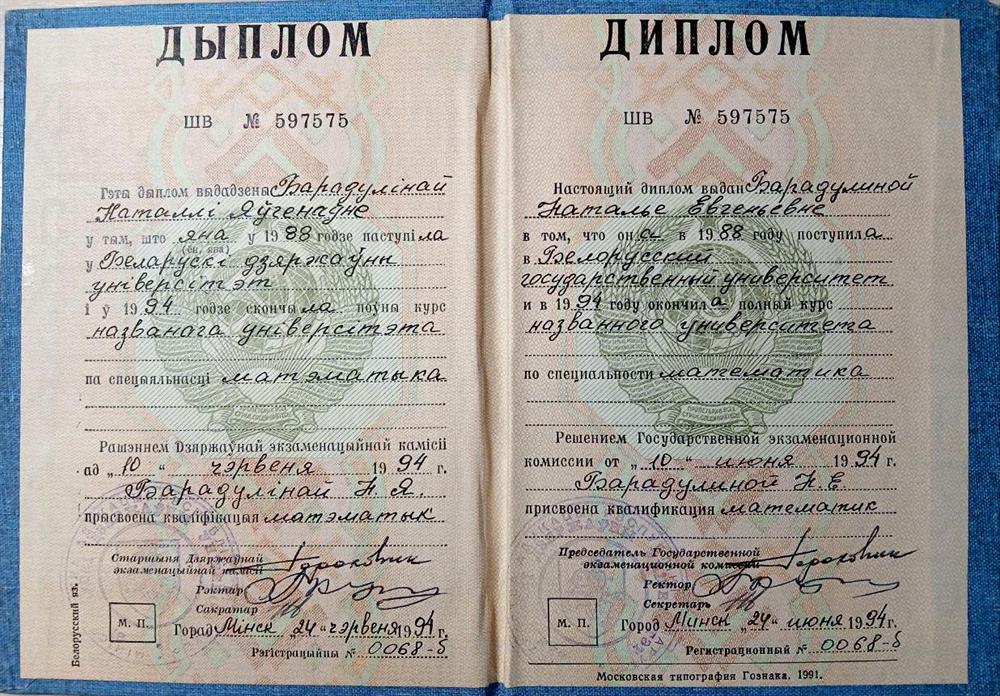 ДЫПЛОМ
ШВ № 597575
Гэты дыплом выдадзены Барадулінай
Наталлі Яўгенаўне
у тым, што яна у 1988 годзе паступіла
(ён, яна)
у Беларускі дзяржаўны
універсітэт
і ў 1994 годзе скончыла поўны курс
названага універсітэта
па спецыяльнасці матэматыка
Рашэннем Дзяржаўнай экзаменацыйнай камісіі
ад „10“ чэрвеня 1994 г.
Барадулінай Н. Я.
прысвоена кваліфікацыя матэматык
Старшыня Дзяржаўнай
экзаменацыйнай камісіі
Рэктар
Сакратар
М. П.
Горад Мінск „24“ чэрвеня 1994 г.
Рэгістрацыйны № 0068-б
Белорусский яз.
ДИПЛОМ
ШВ № 597575
Настоящий диплом выдан Барадулиной
Наталье Евгеньевне
в том, что она в 1988 году поступила
в Белорусский
государственный университет
и в 1994 году окончила полный курс
названного университета
по специальности математика
Решением Государственной экзаменационной
комиссии от „10“ июня 1994 г.
Барадулиной Н. Е.
присвоена квалификация математик
Председатель Государственной
экзаменационной комиссии
Ректор
Секретарь
М. П.
Город Минск „24“ июня 1994 г.
Регистрационный № 0068-б
Московская типография Гознака. 1991.